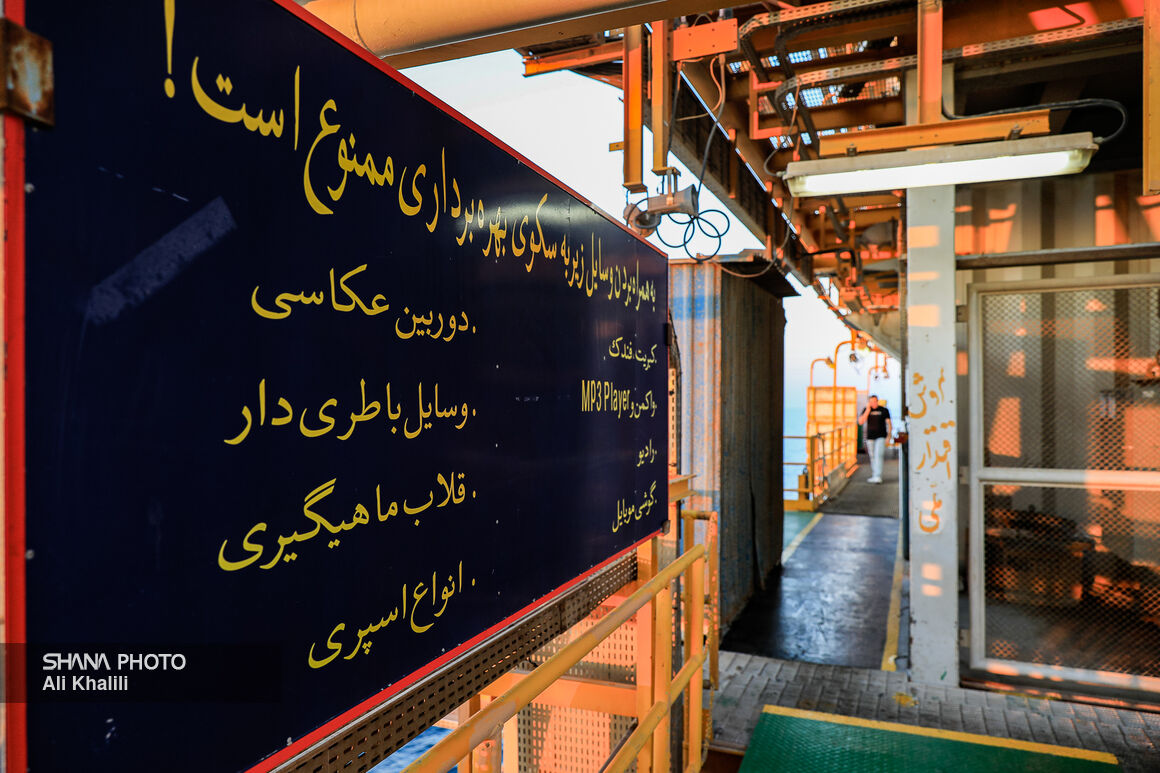 به همراه بردن وسایل زیر به سکوی بهره برداری ممنوع است!
.کبریت.فندک
.واکمن و MP3 Player
.رادیو
.گوشی موبایل
.دوربین عکاسی
.وسایل باطری دار
.قلاب ماهیگیری
.انواع اسپری
اقتدار
ملی
SHANA PHOTO
Ali Khalili